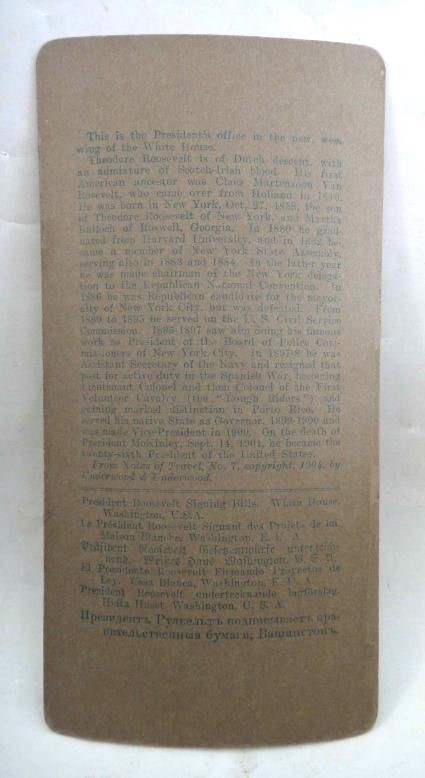 This is the President's office in the new, wes.
wing of the White House.
Theodore Roosevelt is of Dutch descent, with
an admixture of Scotch-Irish blood. His first
American ancestor was Claes Martenzoon Van
Rosevelt, who came over from Holland in 1649.
He was born in New York, Oct. 27, 1858, the son
of Theodore Roosevelt of New York, and Martha
Bulloch of Roswell, Georgia. In 1880 he grad-
uated from Harvard University, and in 1882 be-
came a member of New York State Assembly,
serving also in 1883 and 1884. In the latter year
he was made chairman of the New York delega-
tion to the Republican National Convention. In
1886 he was Republican candidate for the mayor-
alty of New York City, but was defeated. From
1889 to 1895 he served on the U. S. Civil Service
Commission. 1895-1897 saw him doing his famous
work as President of the Board of Police Com-
missioners of New York City. In 1897-8 he was
Assistant Secretary of the Navy and resigned that
post for active duty in the Spanish War, becoming
Lieutenant Colonel and then Colonel of the First
Volunteer Cavalry (the "Rough Riders") and
gaining marked distinction in Porto Rico. He
served his native State as Governor, 1899-1900 and
was made Vice-President in 1900. On the death of
President McKinley, Sept. 14, 1901, he became the
twenty-sixth President of the United States.
From Notes of Travel, No. 7, copyright, 1904, by
Underwood & Underwood.
President Roosevelt Signing Bills. White House,
Washington, U.S.A.
Le Président Roosevelt Signant des Projets de loi.
Maison Blanche, Washington, E. U. A.
Präsident Roosevelt Gesetzentwürfe unterzeich-
nend. Weißes Haus Washington, V. S. A.
El Presidente Roosevelt Firmando Proyectos de
Ley. Casa Blanca, Washington, E. U. A.
President Roosevelt undertecknande lagförslag.
Hvita Huset Washington, U. S. A.
Президентъ Рузвельтъ подписываетъ пра-
вительственныя бумаги, Вашингтонъ.